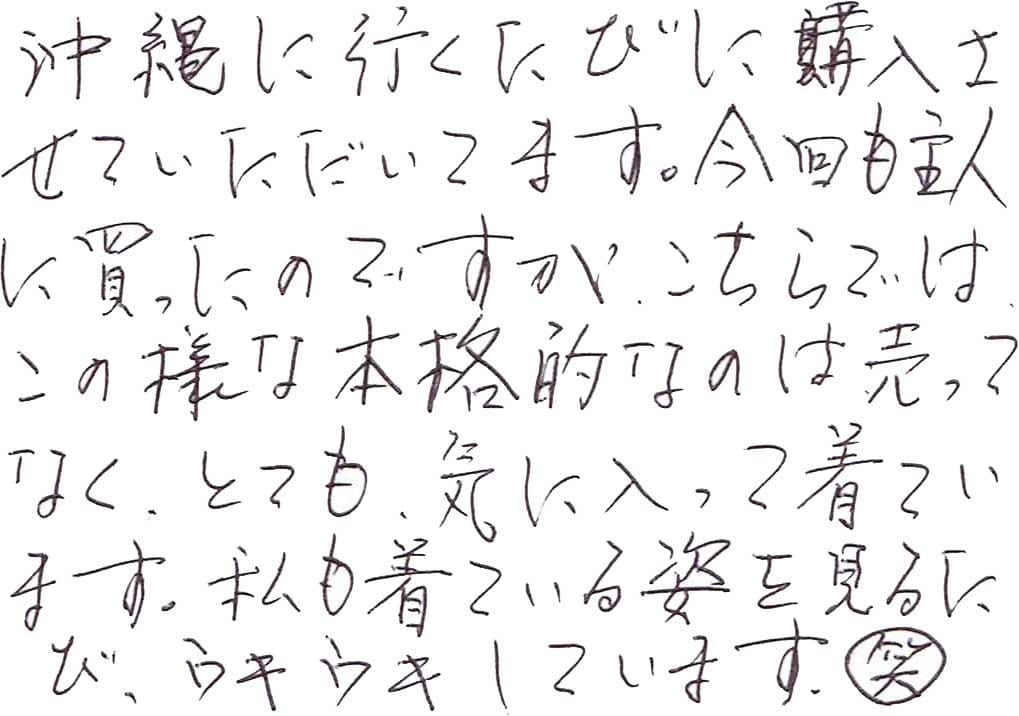 沖縄に行くたびに購入さ
せていただいてます。今回も主人
に買ったのですが、こちらでは、
この様な本格的なのは売って
なく、とても、気に入って着てい
ます。私も着ている姿を見るた
び、ウキウキしています。笑